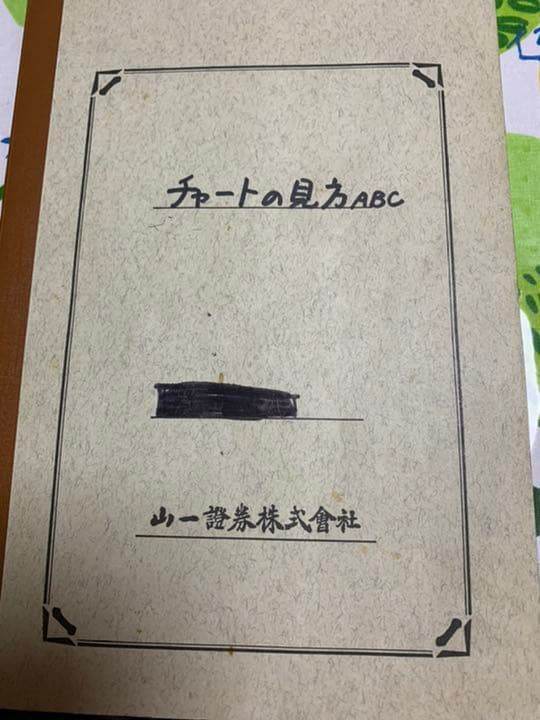 チャートの見方ABC
山一證券株式會社